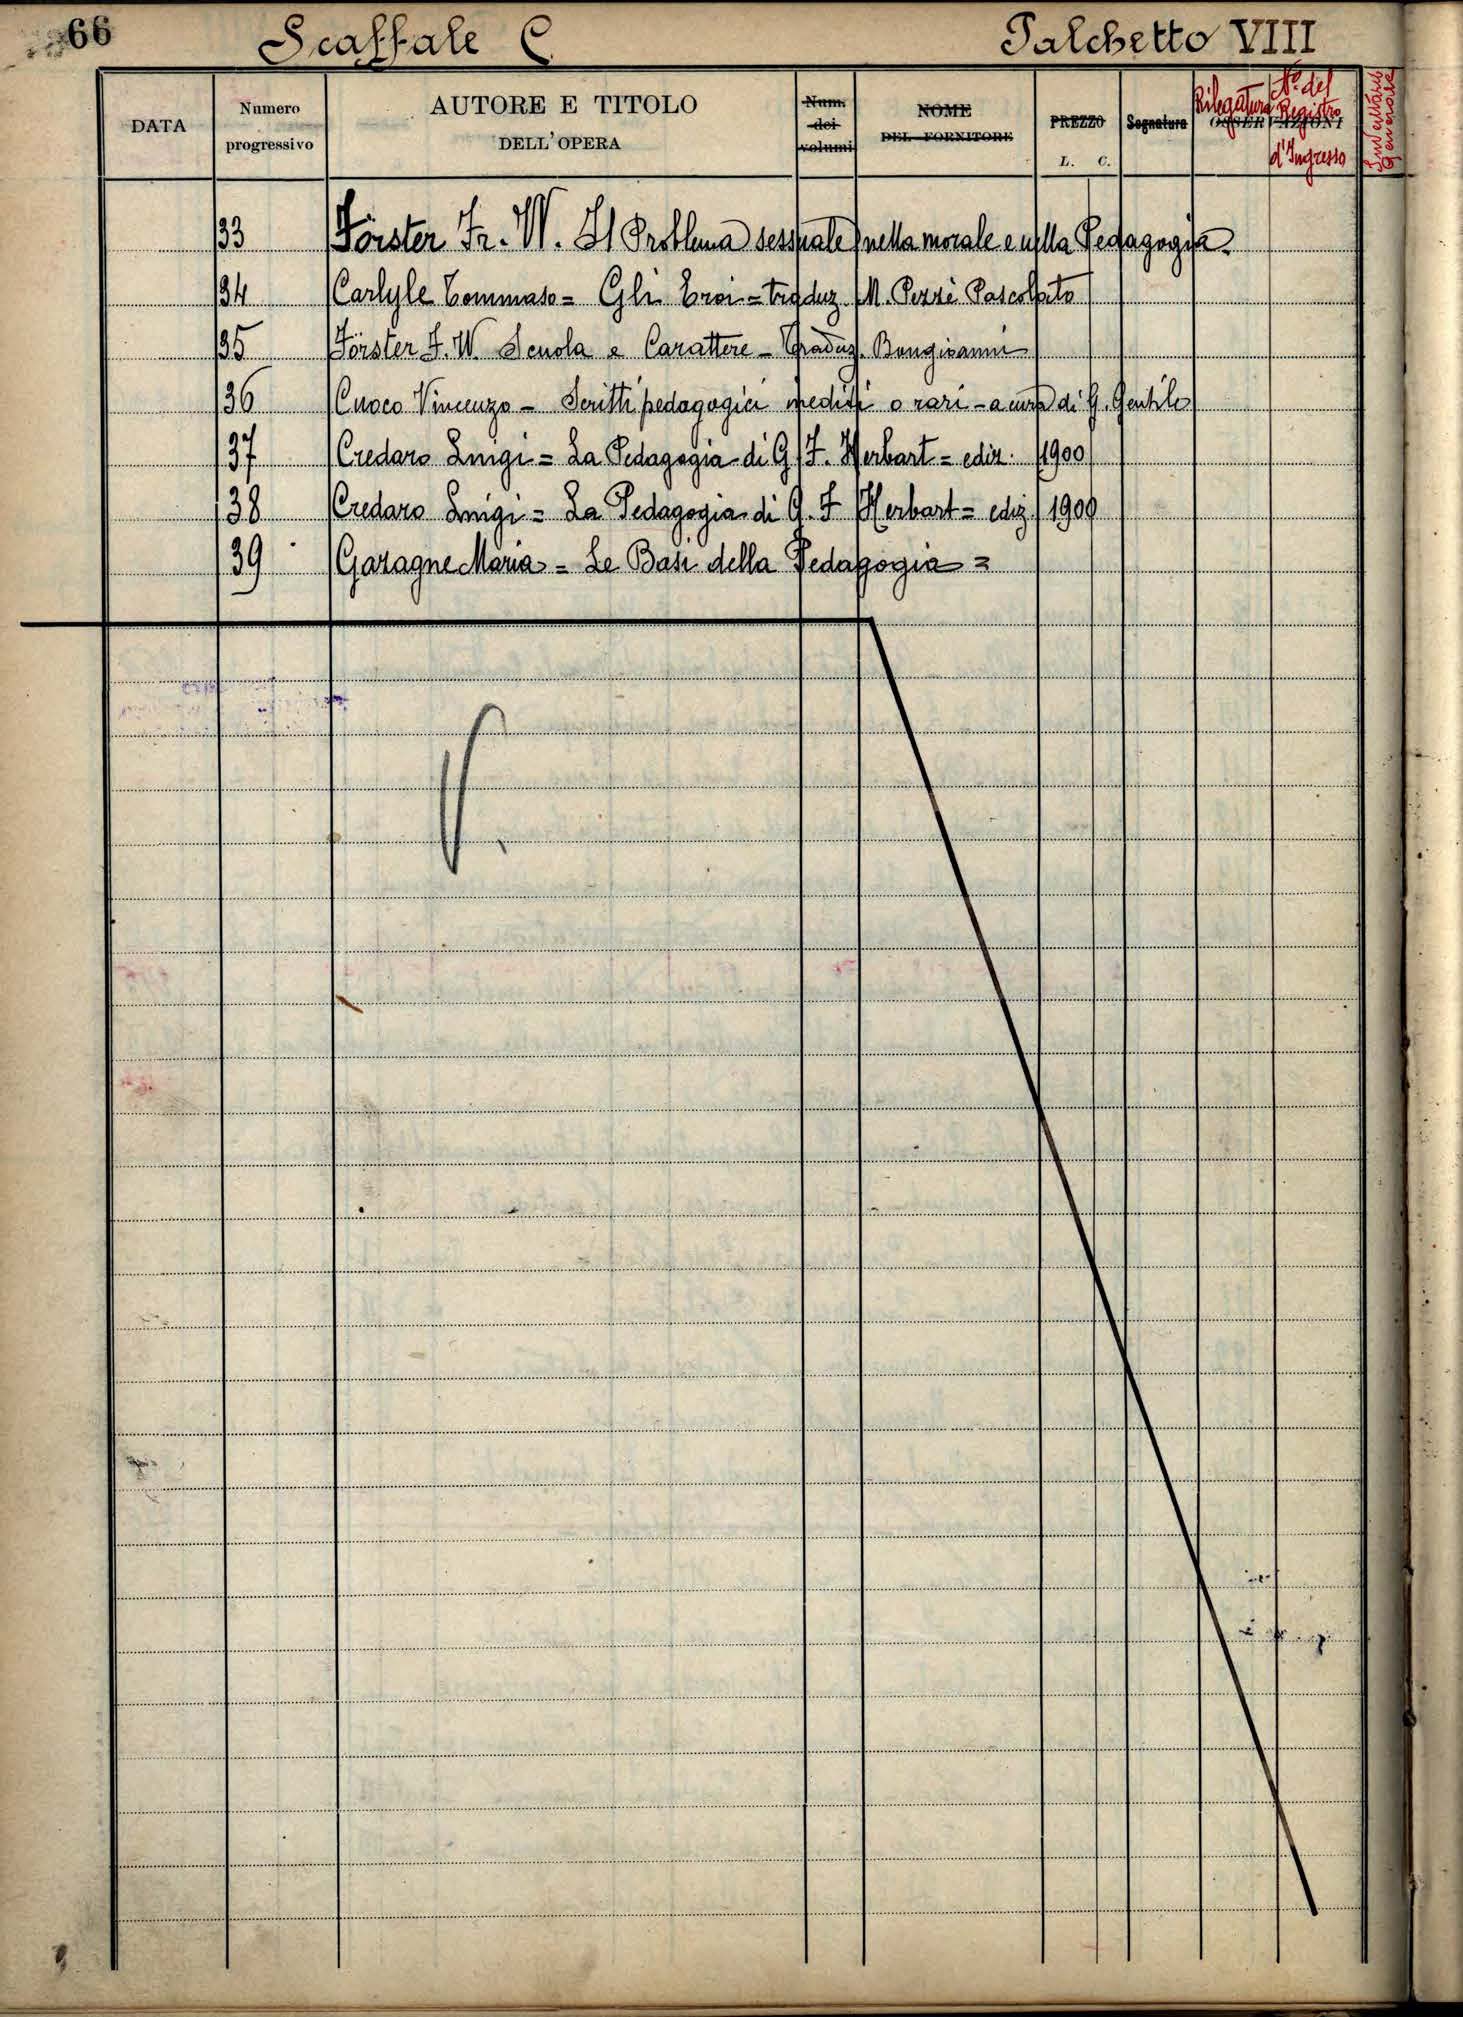 66
Scaffale C
Palchetto VIII
DATA
Numero
progressivo
AUTORE E TITOLO
DELL'OPERA
Num.
dei
volumi
NOME
DEL FORNITORE
PREZZO
L. C.
Segnatura
OSSERVAZIONI
Rilegatura
N.o del
Registro
d'Ingresso
Inventario
Generale
33 Förster Fr. W. Il Problema sessuale nella morale e nella Pedagogia.
34 Carlyle Tommaso = Gli Eroi = traduz. M. Pezzè Pascolato
35 Förster F. W. Scuola e Carattere - Traduz. Bongioanni
36 Cuoco Vincenzo - Scritti pedagogici inediti o rari - a cura di G. Gentile
37 Credaro Luigi = La Pedagogia di G. F. Herbart = ediz. 1900
38 Credaro Luigi = La Pedagogia di G. F Herbart = ediz. 1900
39 Garagne Maria = Le Basi della Pedagogia =
V.